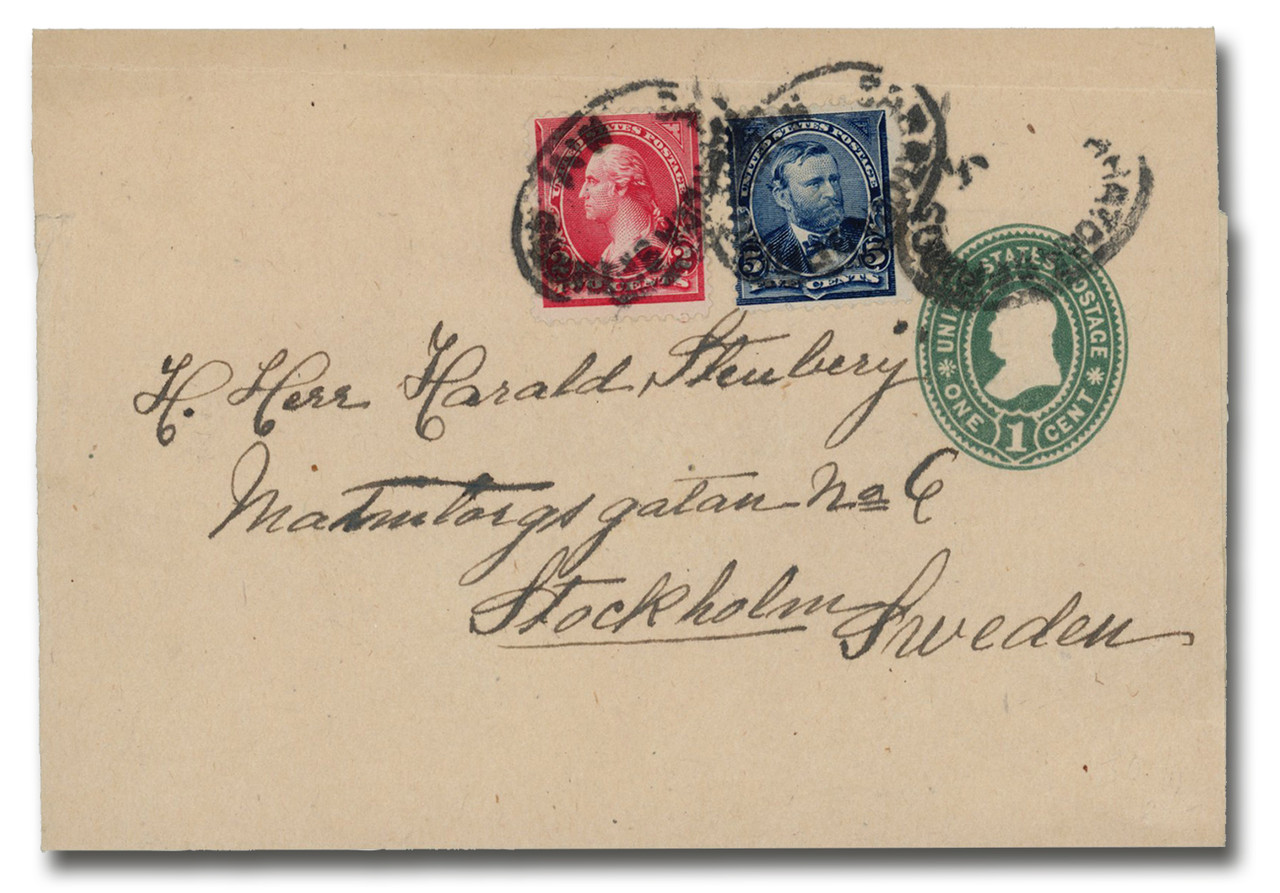 UNITED STATES POSTAGE
2 2
TWO CENTS
UNITED STATES POSTAGE
5 5
FIVE CENTS
UNITED STATES POSTAGE
ONE 1 CENT
H. Herr Harald Stenberg
Malmtorgsgatan No 6
Stockholm Sweden